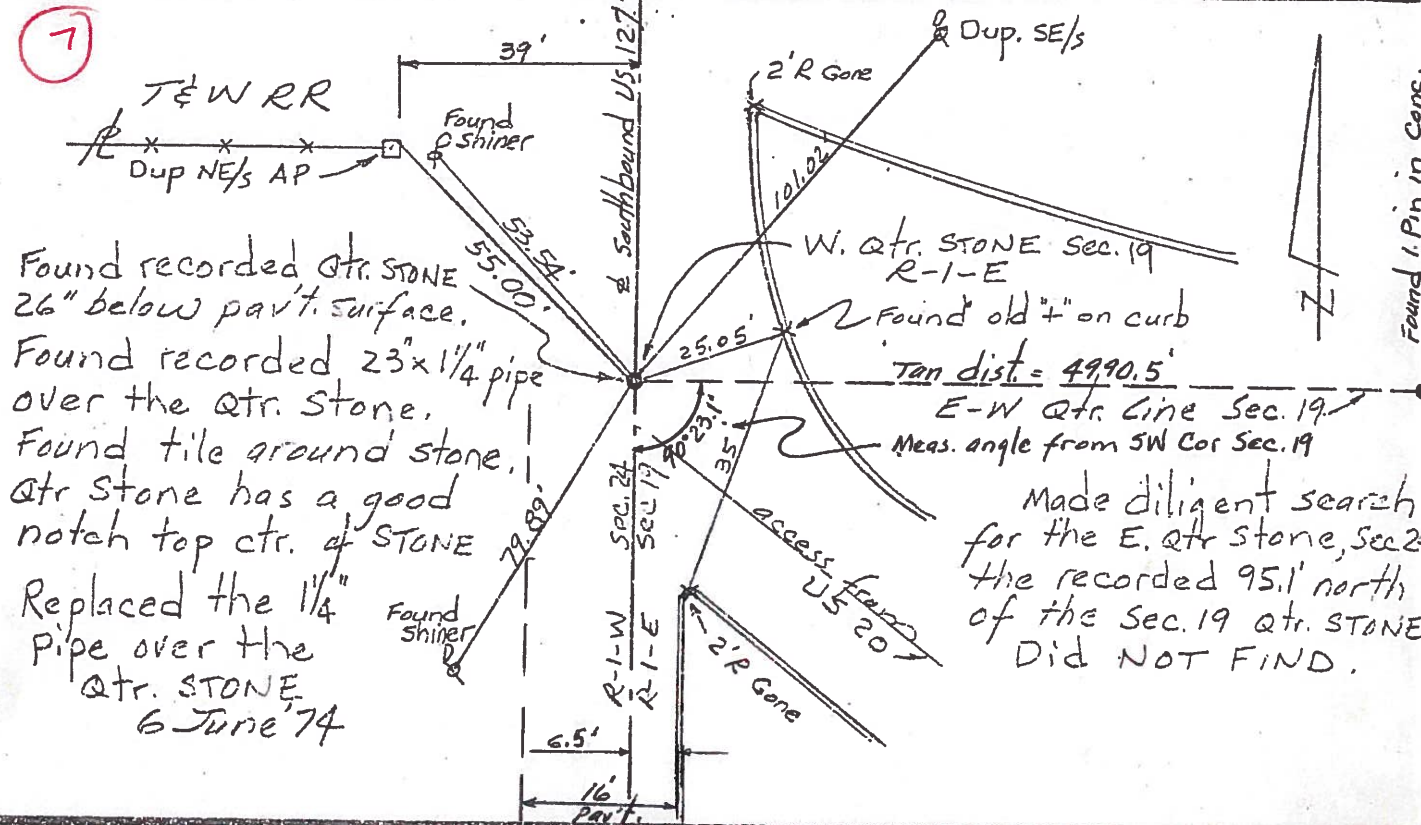 7
39'
T & W RR
Found
Shiner
Dup NE/s AP
℄ Southbound US 127
Dup. SE/s
2' R Gone
101.02'
53.54'
55.00'
Found recorded Qtr. STONE
26" below pav't. surface.
Found recorded 23" x 1¼" pipe
over the Qtr. Stone.
Found tile around stone.
Qtr Stone has a good
notch top ctr. of STONE
Replaced the 1¼"
pipe over the
Qtr. STONE
6 June '74
W. Qtr. STONE Sec. 19
R-1-E
Found old "+" on curb
25.05'
Tan dist. = 4990.5'
E-W Qtr. Line Sec. 19
Meas. angle from SW Cor Sec. 19
90° 23.1'
35'
Sec. 24
Sec 19
access from
US 20
79.89'
Found
Shiner
R-1-W
R-1-E
2' R Gone
6.5'
16'
Pav't.
Made diligent search
for the E. Qtr Stone, Sec 2
the recorded 95.1' north
of the Sec. 19 Qtr. STONE
Did NOT FIND.
N
Found I. Pin in Conc.